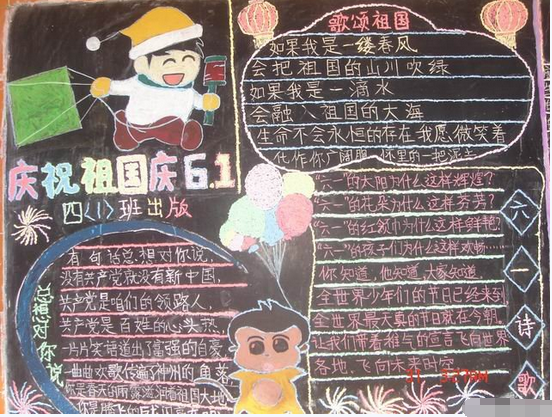 歌颂祖国
如果我是一缕春风
会把祖国的山川吹绿
如果我是一滴水
会融入祖国的大海
生命不会永恒的存在我愿微笑着
化作你广阔胸怀里的一把泥土
庆祝祖国庆6.1
四<1>班出版
总想对你说
有句话总想对你说,
没有共产党就没有新中国,
共产党是咱们的领路人,
共产党是百姓的心头热,
一片片笑语道出了富强的自豪,
一曲曲欢歌传遍了神州的角落
你是春天的雨露滋润祖国大地
六一诗歌
“六一”的太阳为什么这样辉煌?
“六一”的花朵为什么这样芬芳?
“六一”的红领巾为什么这样鲜艳?
“六一”的孩子们为什么这样欢畅
你知道,他知道,大家知道,
全世界少年们的节日已经来到
全世界最天真的节日就在今朝
让我们带着稚气的宣言飞向世界
各地,飞向未来时空